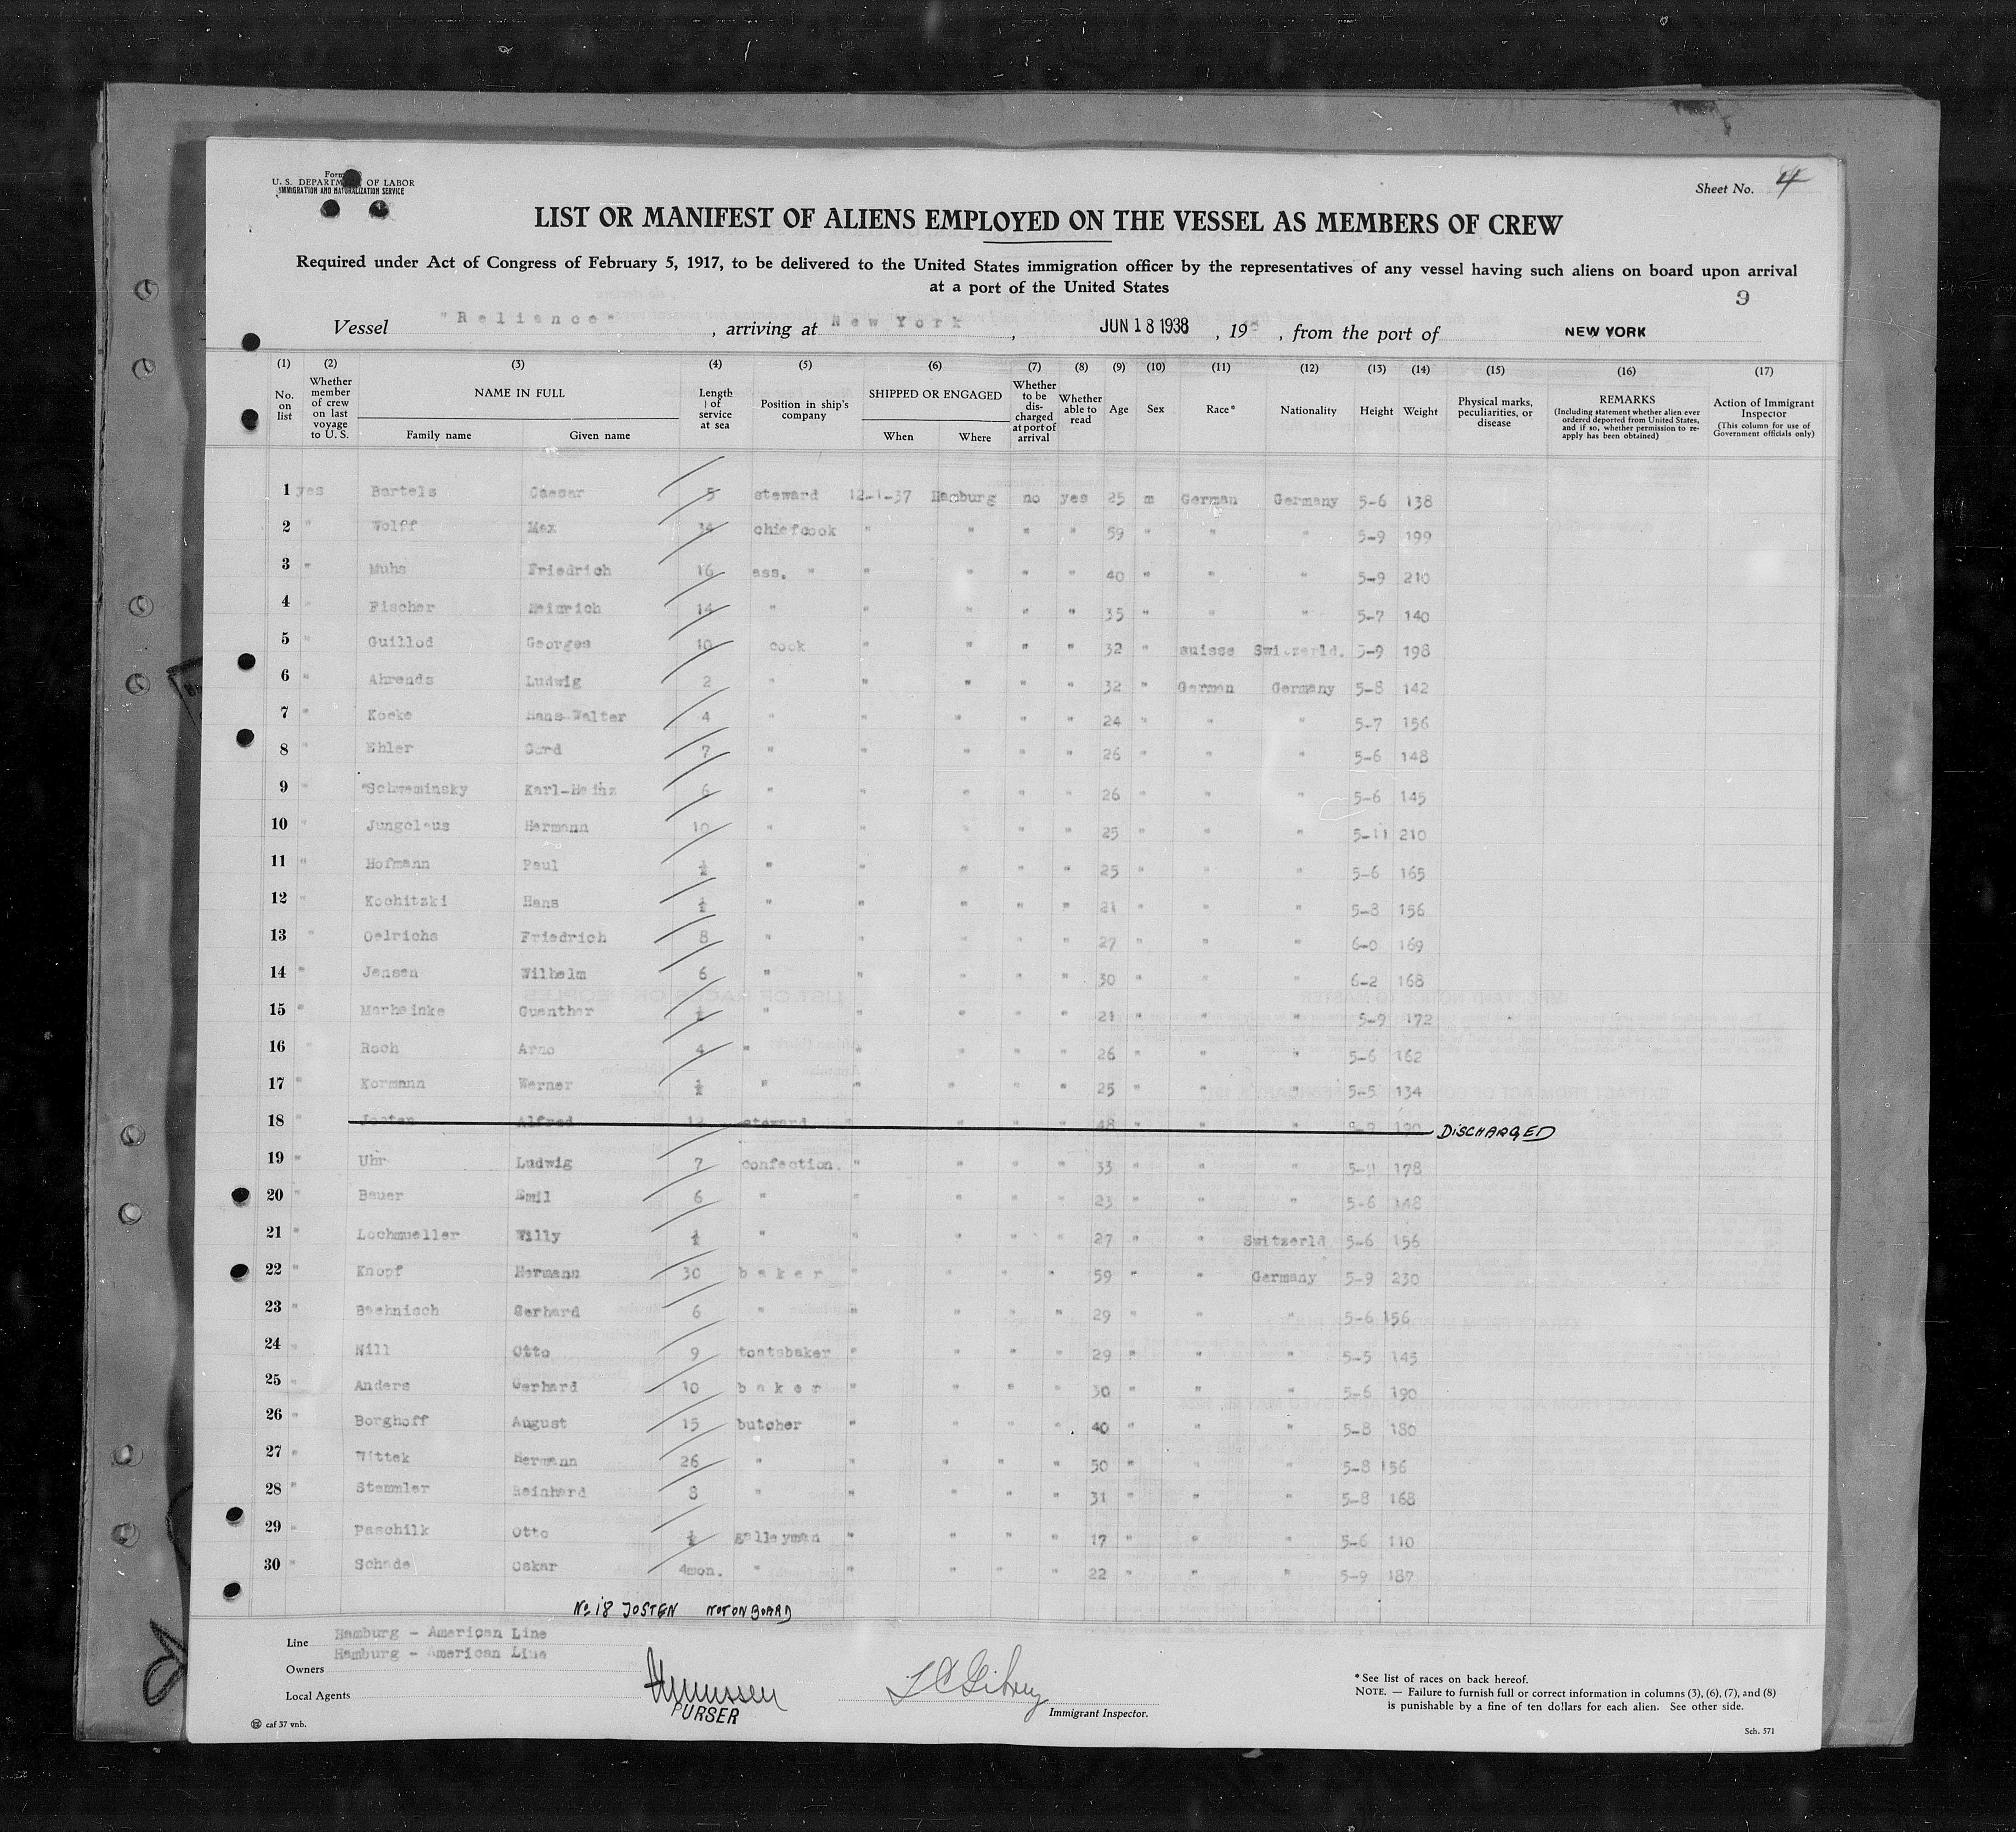 Form
U. S. DEPARTM OF LABOR
IMMIGRATION AND NATURALIZATION SERVICE
Sheet No. 4
LIST OR MANIFEST OF ALIENS EMPLOYED ON THE VESSEL AS MEMBERS OF CREW
Required under Act of Congress of February 5, 1917, to be delivered to the United States immigration officer by the representatives of any vessel having such aliens on board upon arrival
at a port of the United States
9
Vessel "Reliance", arriving at New York, JUN 18 1938, 19 , from the port of NEW YORK
(1) (2) (3) (4) (5) (6) (7) (8) (9) (10) (11) (12) (13) (14) (15) (16) (17)
No. on list Whether member of crew on last voyage to U. S. NAME IN FULL Family name Given name Length of service at sea Position in ship's company SHIPPED OR ENGAGED When Where Whether to be discharged at port of arrival Whether able to read Age Sex Race* Nationality Height Weight Physical marks, peculiarities, or disease REMARKS (Including statement whether alien ever ordered deported from United States, and if so, whether permission to re-apply has been obtained) Action of Immigrant Inspector (This column for use of Government officials only)
1 yes Bartels Caesar 5 steward 12-1-37 Hamburg no yes 25 m German Germany 5-6 138
2 " Wolff Max 34 chiefcook " " " " 59 " " " 5-9 199
3 " Muhs Friedrich 16 ass. " " " " " 40 " " " 5-9 210
4 " Fischer Heinrich 14 " " " " " 35 " " " 5-7 140
5 " Guillod Georges 10 cook " " " " 32 " suisse Switzerld. 5-9 198
6 " Ahrends Ludwig 2 " " " " " 32 " German Germany 5-8 142
7 " Kocke Hans-Walter 4 " " " " " 24 " " " 5-7 156
8 " Ehler Gerd 7 " " " " " 26 " " " 5-6 148
9 " Schweminsky Karl-Heinz 6 " " " " " 26 " " " 5-6 145
10 " Jungclaus Hermann 10 " " " " " 25 " " " 5-11 210
11 " Hofmann Paul ½ " " " " " 25 " " " 5-6 165
12 " Kochitzki Hans ½ " " " " " 21 " " " 5-8 156
13 " Oelrichs Friedrich 8 " " " " " 27 " " " 6-0 169
14 " Jensen Wilhelm 6 " " " " " 30 " " " 6-2 168
15 " Marheinke Guenther ½ " " " " " 21 " " " 5-9 172
16 " Roch Arno 4 " " " " " 26 " " " 5-6 162
17 " Kormann Werner ½ " " " " " 25 " " " 5-5 134
18 " Josten Alfred 12 steward " " " " 48 " " " 5-9 190 DISCHARGED
19 " Uhr Ludwig 7 confection. " " " " 33 " " " 5-11 178
20 " Bauer Emil 6 " " " " " 23 " " " 5-6 148
21 " Lochmueller Willy ½ " " " " " 27 " " Switzerld 5-6 156
22 " Knopf Hermann 30 baker " " " " 59 " " Germany 5-9 230
23 " Baehnisch Gerhard 6 " " " " " 29 " " " 5-6 156
24 " Nill Otto 9 toatsbaker " " " " 29 " " " 5-5 145
25 " Anders Gerhard 10 baker " " " " 30 " " " 5-6 190
26 " Borghoff August 15 butcher " " " " 40 " " " 5-8 180
27 " Wittek Hermann 26 " " " " " 50 " " " 5-8 156
28 " Stemmler Reinhard 8 " " " " " 31 " " " 5-8 168
29 " Paschilk Otto ½ galleyman " " " " 17 " " " 5-6 110
30 " Schade Oskar 4mon. " " " " " 22 " " " 5-9 187
No 18 JOSTEN NOT ON BOARD
Line Hamburg - American Line
Owners Hamburg - American Line
Local Agents
PURSER
Immigrant Inspector.
*See list of races on back hereof.
NOTE. — Failure to furnish full or correct information in columns (3), (6), (7), and (8)
is punishable by a fine of ten dollars for each alien. See other side.
caf 37 vnb.
Sch. 571